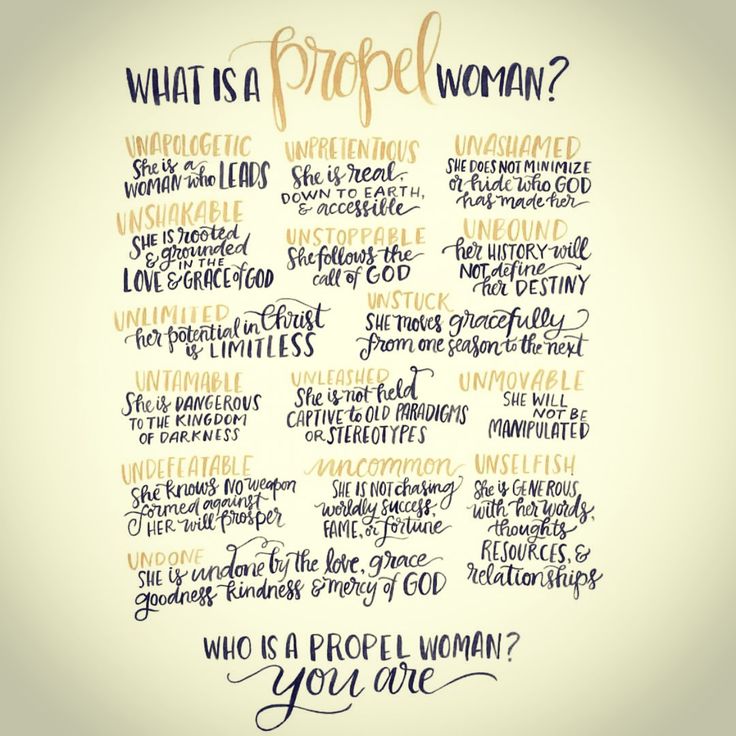 WHAT IS A propel WOMAN?
UNAPOLOGETIC
She is a
WOMAN who LEADS
UNPRETENTIOUS
She is real,
DOWN TO EARTH,
& accessible
UNASHAMED
SHE DOES NOT MINIMIZE
or hide who GOD
has made her
UNSHAKABLE
SHE IS rooted
& grounded
IN THE
LOVE & GRACE of GOD
UNSTOPPABLE
She follows the
call of GOD
UNBOUND
her HISTORY will
NOT define
her DESTINY
UNLIMITED
her potential in Christ
is LIMITLESS
UNSTUCK
SHE moves gracefully
from one season to the next
UNTAMABLE
She is DANGEROUS
TO THE KINGDOM
OF DARKNESS
UNLEASHED
She is not held
CAPTIVE to OLD PARADIGMS
OR STEREOTYPES
UNMOVABLE
SHE WILL
NOT BE
MANIPULATED
UNDEFEATABLE
She knows NO weapon
formed against
HER will prosper
uncommon
SHE IS NOT chasing
worldly success,
FAME, or fortune
UNSELFISH
She is GENEROUS
with her words,
thoughts
RESOURCES, &
relationships
UNDONE
SHE is undone by the love, grace
goodness kindness & mercy of GOD
WHO IS A PROPEL WOMAN?
you are